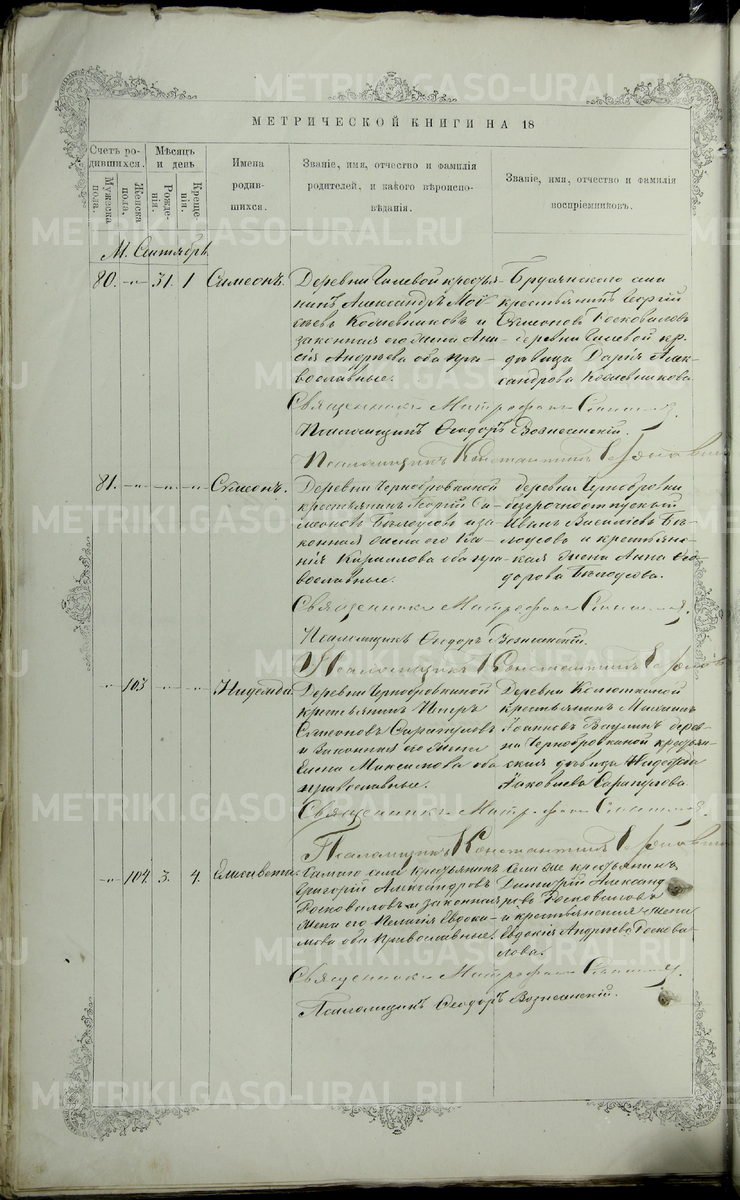 МЕТРИЧЕСКОЙ КНИГИ НА 18
Счетъ ро-
дившихся.
Мужеска
пола.
Женска
пола.
Мѣсяцъ
и день
Рожде-
нія.
Креще-
нія.
Имена
родив-
шихся.
Званіе, имя, отчество и фамилія
родителей, и какого вѣроиспо-
вѣданія.
Званіе, имя, отчество и фамилія
воспріемниковъ.
М. Сентябрь
80. -"- 31. 1 Симеонъ.
Деревни Гилевой крестья-
нинъ Александръ
Кожевниковъ и
законная его жена Ани-
сія Андреева оба пра-
вославные.
Бруснянского села
крестьянинъ Георгій
Симеоновъ Росковаловъ
деревни Гилевой кр.
дѣвица Дарія Алек-
сандрова Кожевникова.
Священникъ Митрофанъ
Псаломщикъ Ѳеодоръ Вознесенскій.
Псаломщикъ Константинъ
81. -"- -"- -"- Симеонъ.
Деревни Чернобровкиной
крестьянинъ Георгій Си-
меоновъ Бѣлоусовъ и за-
конная жена его
Кириллова оба пра-
вославные.
деревни Чернобровки
безсрочноотпускный
Иванъ Василіевъ Бѣ-
лоусовъ и крестьян-
ская жена Анна Ѳео-
дорова Бѣлоусова.
Священникъ Митрофанъ
Псаломщикъ Ѳеодоръ Вознесенскій.
Псаломщикъ Константинъ
-"- 103 -"- -"- Надежда.
Деревни Чернобровкиной
крестьянинъ Петръ
Симеоновъ Сарапуловъ
и законная его жена
Елена Максимова оба
православные.
Деревни Колюткиной
крестьянинъ
Іоанновъ Ваулинъ дерев-
ни Чернобровкиной крестьян-
ская дѣвица Надежда
Іаковлева Сарапулова.
Священникъ Митрофанъ
Псаломщикъ Константинъ
-"- 104. 3. 4. Елисавета.
Тогоже села крестьянинъ
Григорій Александровъ
Росковаловъ и законная
жена его Пелагія Евдоки-
мова оба православные.
Села же крестьянинъ
Димитрій Александ-
ровъ Росковаловъ
и крестьянская жена
Евдокія Андреева Роскова-
лова.
Священникъ Митрофанъ
Псаломщикъ Ѳеодоръ Вознесенскій.
METRIKI.GASO-URAL.RU